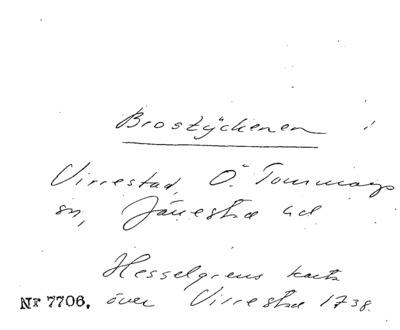 Brostyckenen i
Virrestad, Ö. Tommarps
sn, Järrestad hd
Hesselgrens karta
Nr 7706. över Virrestad 1738.